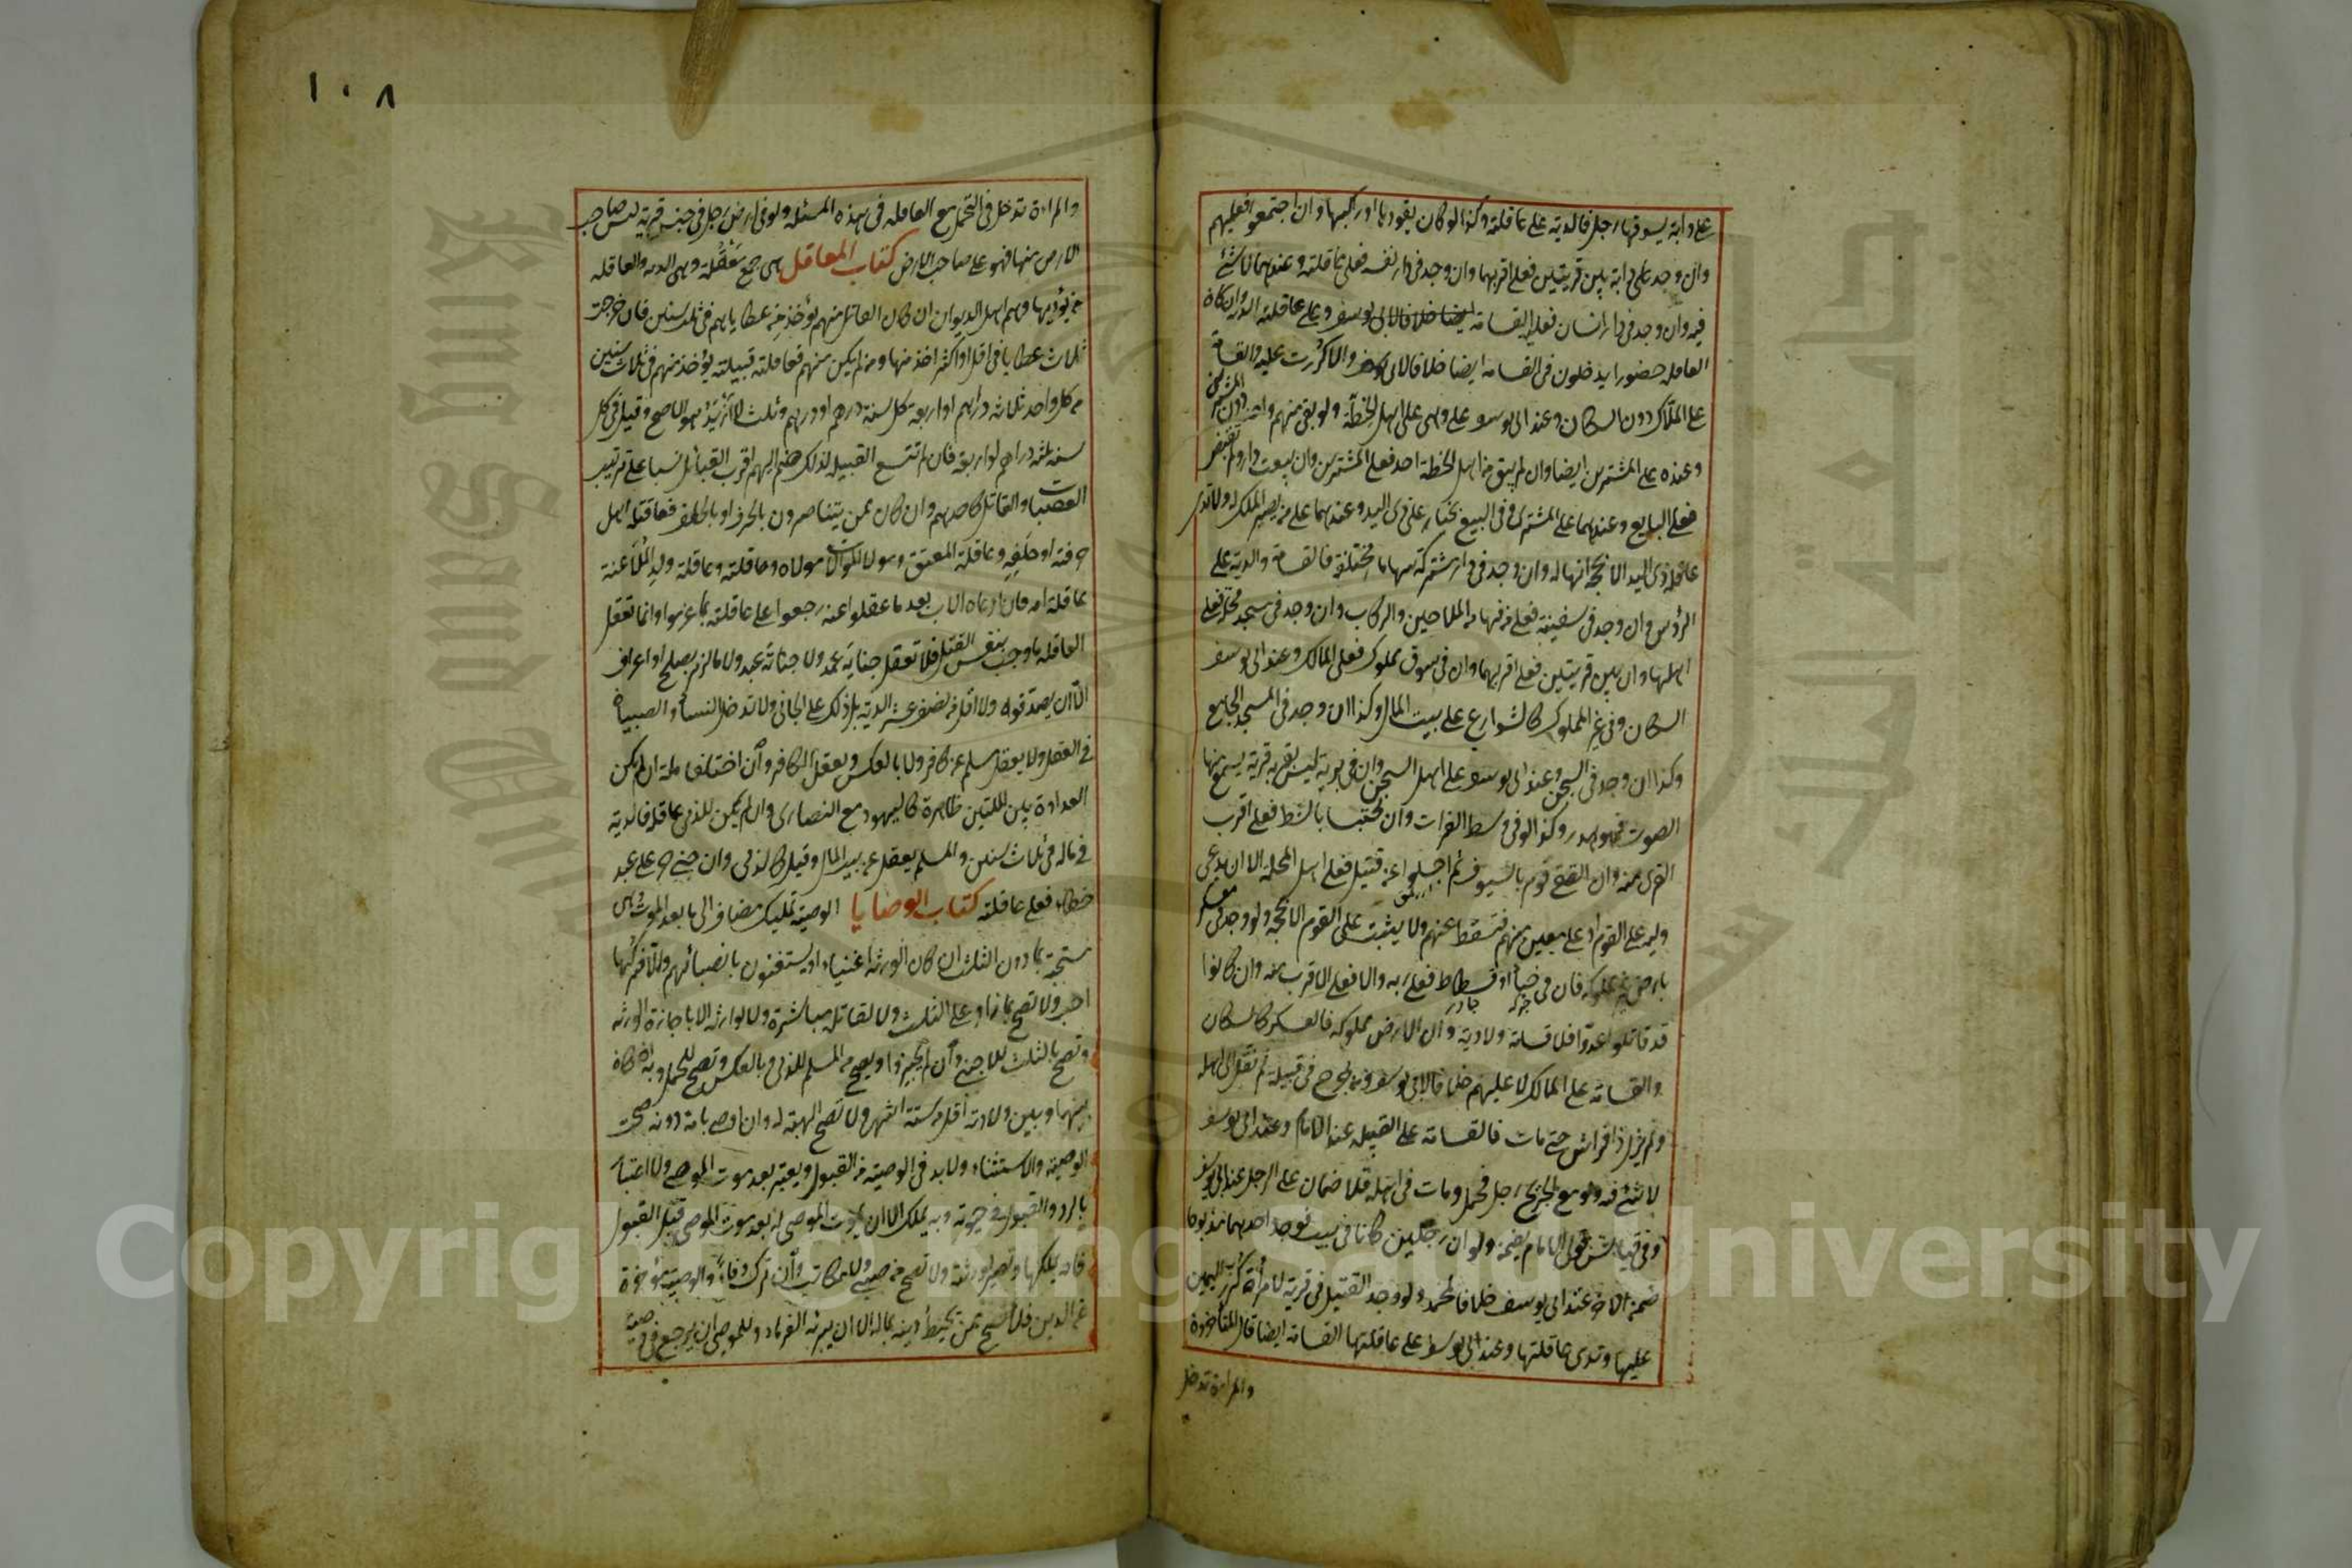 على دابة يسوقها رجل فالدية على عاقلته وكذا لو كان يقودها او راكبها وان اجتمعوا فعليهم
وان وجد على دابة بين قريتين فعلى اقربهما وان وجد في دار نفسه فعلى عاقلته وعندهما لا شئ
فيه وان وجد في دار انسان فعليه القسامة وعلى عاقلته الدية وان كان
العاقلة حضورا يدخلون في القسامة ايضا خلافا لابي يوسف والا كررت عليه والقسامة
على الملاك دون السكان وعند ابي يوسف على وهي على اهل الخطة ولو بقي منهم واحد دون المشترين
وعنده على المشترين ايضا وان لم يبق من اهل الخطة احد فعلى المشترين وان بيعت دار ولم تقبض
فعلى البايع وعندهما على المشتري وفي البيع بخيار على ذي اليد وعندهما على من يصير الملك له ولا تدي
عاقلة ذي اليد الا بحجة انها له وان وجد في دار مشتركة سهاما مختلفة فالقسامة والدية على
الرؤس وان وجد في سفينة فعلى من فيها من الملاحين والركاب وان وجد في مسجد محلة فعلى
اهلها وان بين قريتين فعلى اقربهما وان في سوق مملوك فعلى المالك وعند ابي يوسف
السكان وفي غير المملوك كالشوارع على بيت المال وكذا ان وجد في المسجد الجامع
وكذا ان وجد في السجن وعند ابي يوسف على اهل السجن وان في برية ليس بقربه قرية يسمع منها
الصوت فهو هدر وكذا لو في وسط الفرات وان محتبسا بالشط فعلى اقرب
القرى منه وان التقى قوم بالسيوف ثم اجلوا عن قتيل فعلى اهل المحلة الا ان يدعي
وليه على القوم او على معين منهم فتسقط عنهم ولا يثبت على القوم الا بحجة ولو وجد في معسكر
بارض غير مملوكة فان في خباء او فسطاط فعلى ربه والا فعلى الاقرب منه وان كانوا
قد قاتلوا عدوا فلا قسامة ولا دية وان الارض مملوكة فالعسكر كالسكان
والقسامة على المالك لا عليهم خلافا لابي يوسف ومن جرح في قبيلة ثم نقل الى اهله
ولم يزل ذا فراش حتى مات فالقسامة على القبيلة عند الامام وعند ابي يوسف
لا شئ فيه ولو مع الجريح رجل فحمل ومات في اهله فلا ضمان على الرجل عند ابي يوسف
وفي قياس قول الامام يضمن ولو ان رجلين كانا في بيت فوجد احدهما مذبوحا
ضمن الاخر عند ابي يوسف خلافا لمحمد ولو وجد القتيل في قرية لامرأة كرر اليمين
عليها وتدي عاقلتها وعند ابي يوسف على عاقلتها القسامة ايضا قال المتأخرون
والمراءة تدخل
١٠٨
والمراءة تدخل في التحمل مع العاقلة في هذه المسئلة ولو في ارض رجل في جنب قرية ليس صاحب
الارض منها فهو على صاحب الارض كتاب المعاقل هي جمع معقلة وهي الدية والعاقلة
من يؤديها وهم اهل الديوان ان كان القاتل منهم يؤخذ من عطاياهم في ثلث سنين فان خرجت
ثلاث عطايا في اقل او اكثر اخذ منها ومن لم يكن منهم فعاقلته قبيلته يؤخذ منهم في ثلاث سنين
من كل واحد ثلاثة دراهم او اربعة كل سنة درهم او درهم وثلث لا ازيد هو الاصح وقيل في كل
سنة ثلثة دراهم او اربعة فان لم تتسع القبيلة لذلك ضم اليهم اقرب القبائل نسبا على ترتيب
العصبات والقاتل كاحدهم وان كان ممن يتناصرون بالحرف او بالحلف فعاقلته اهل
حرفته او حلفه وعاقلة المعتق ومولى الموالاة مولاه وعاقلته وعاقلة ولد الملاعنة
عاقلة امه فان ادعاه الاب بعد ما عقلوا عنه رجعوا على عاقلته بما غرموا وانما تعقل
العاقلة ما وجب بنفس القتل فلا تعقل جناية عمد ولا جناية عبد ولا ما لزم بصلح او اعتراف
الا ان يصدقوه ولا اقل من نصف عشر الدية بل ذلك على الجاني ولا تدخل النساء والصبيان
في العقل ولا يعقل مسلم عن كافر ولا بالعكس ويعقل الكافر وان اختلفا ملة ان لم يكن
العداوة بين الملتين ظاهرة كاليهود مع النصارى وان لم يكن للذمي عاقلة فالدية
في ماله في ثلاث سنين والمسلم يعقل عنه بيت المال وقيل كالذمي وان جنى حر على عبد
خطاء فعلى عاقلته كتاب الوصايا الوصية تمليك مضاف الى ما بعد الموت وهي
مستحبة بما دون الثلث ان كان الورثة اغنياء او يستغنون بانصبائهم والا فتركها
احب ولا تصح بما زاد على الثلث ولا لقاتله مباشرة ولا لوارثه الا باجازة الورثة
وتصح بالثلث للاجنبي وان لم يجيزوا ويصح من المسلم للذمي وبالعكس وتصح للحمل وبه ان كان
بينهما وبين ولادته اقل من ستة اشهر ولا تصح الهبة له وان اوصى بامة دونه صحت
الوصية والاستثناء ولا بد في الوصية من القبول ويعتبر بعد موت الموصي ولا اعتبار
بالرد والقبول في حيوته وبه يملك الا ان يموت الموصى له بعد موت الموصي قبل القبول
فانه يملكها وتصير لورثته ولا تصح من صبي ولا مكاتب وان ترك وفاء والوصية مؤخرة
عن الدين فلا تصح ممن يحيط دينه بماله الا ان يبرئه الغرماء وللموصي ان يرجع في وصيته
King Saud University
Copyright © King Saud University